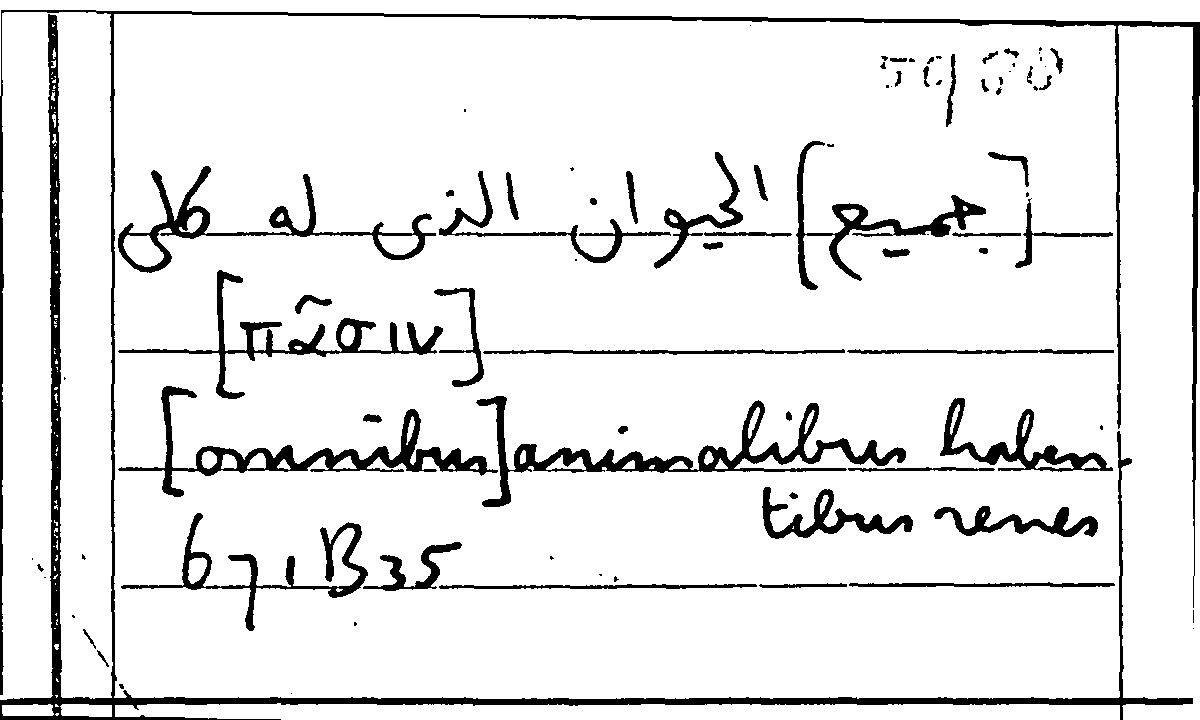 5988
[جميع] الحيوان الذى له كلى
[πᾶσιν]
[omnibus] animalibus haben-
tibus renes
671B35